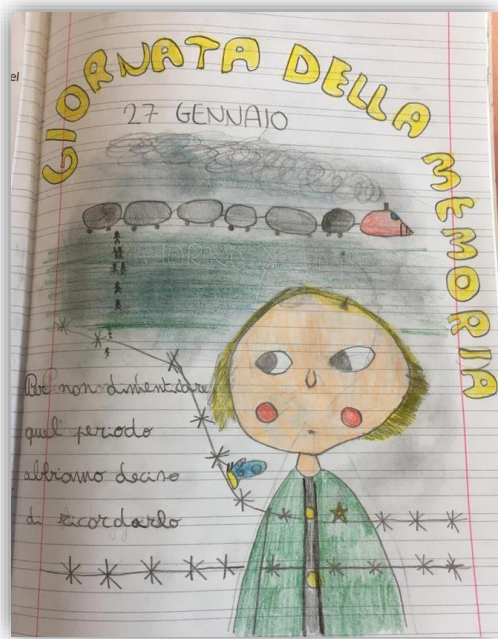 GIORNATA DELLA MEMORIA
27 GENNAIO
Per non dimenticare
quel periodo
abbiamo deciso
di ricordarlo